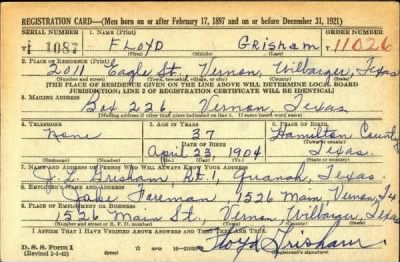 REGISTRATION CARD—(Men born on or after February 17, 1897 and on or before December 31, 1921)
SERIAL NUMBER 1. NAME (Print) ORDER NUMBER
T 1087 FLOYD Grisham T11026
(First) (Middle) (Last)
2. PLACE OF RESIDENCE (Print)
2011 Eagle St. Vernon, Wilbarger, Texas
(Number and street) (Town, township, village, or city) (County) (State)
[THE PLACE OF RESIDENCE GIVEN ON THE LINE ABOVE WILL DETERMINE LOCAL BOARD
JURISDICTION; LINE 2 OF REGISTRATION CERTIFICATE WILL BE IDENTICAL]
3. MAILING ADDRESS
Box 226 Vernon, Texas
[Mailing address if other than place indicated on line 2. If same insert word same]
4. TELEPHONE 5. AGE IN YEARS 6. PLACE OF BIRTH
None 37 Hamilton County
DATE OF BIRTH (Town or county)
April 23 1904 Texas.
(Exchange) (Number) (Mo.) (Day) (Yr.) (State or country)
7. NAME AND ADDRESS OF PERSON WHO WILL ALWAYS KNOW YOUR ADDRESS
Grisham, Rt. 1, Quanah, Texas.
8. EMPLOYER'S NAME AND ADDRESS
Jake Foreman 1526 Main Vernon, Tex
9. PLACE OF EMPLOYMENT OR BUSINESS
1526 Main St., Vernon, Wilbarger, Texas
(Number and street or R. F. D. number) (Town) (County) (State)
I AFFIRM THAT I HAVE VERIFIED ABOVE ANSWERS AND THAT THEY ARE TRUE.
D. S. S. Form 1
(Revised 1-1-42) (over) Floyd Grisham.